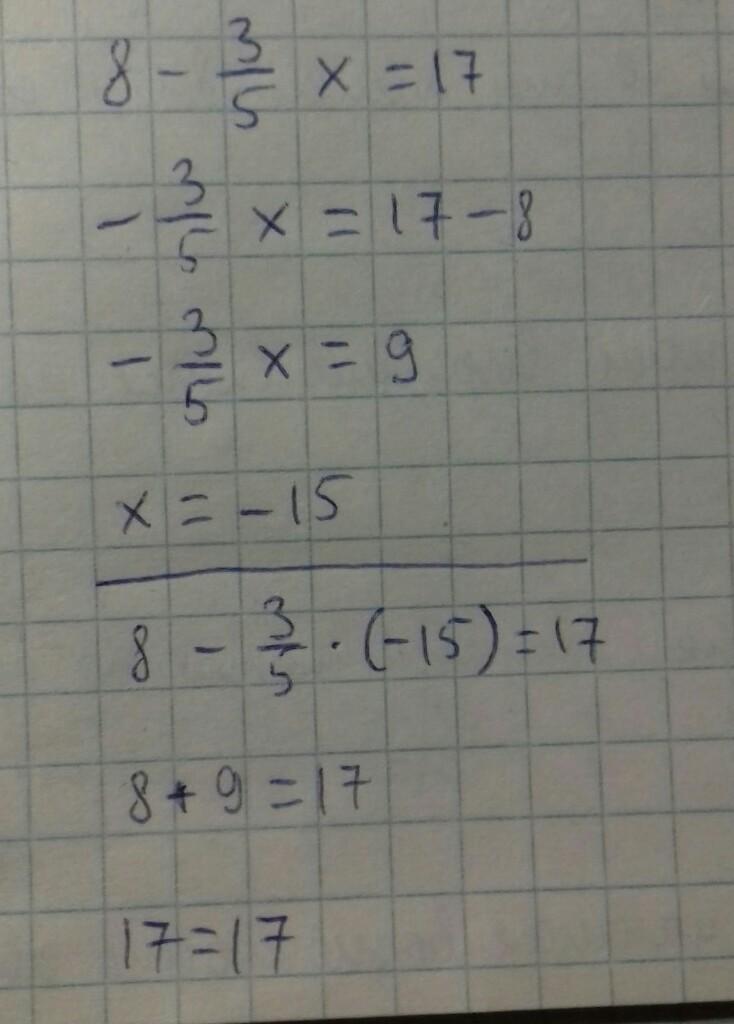 8 - 3/5 x = 17
- 3/5 x = 17 - 8
- 3/5 x = 9
x = -15
8 - 3/5 · (-15) = 17
8 + 9 = 17
17 = 17